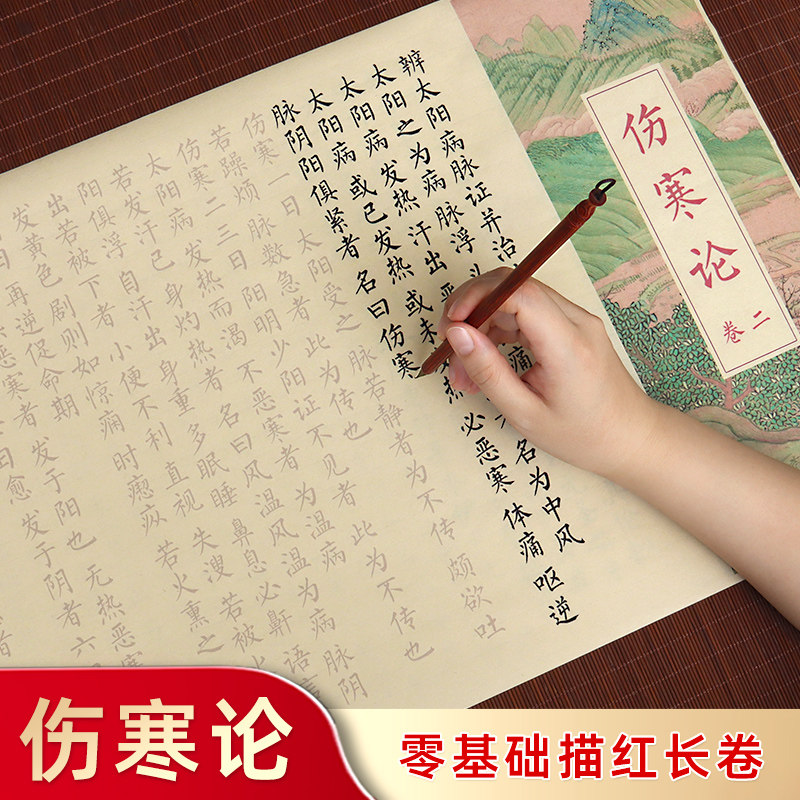 伤寒论
卷二
辨太阳病脉证并治
太阳之为病 脉浮
太阳病 发热 汗出 名为中风
太阳病 或已发热 或未 热 必恶寒 体痛 呕逆
脉阴阳俱紧者 名曰伤寒
伤寒一日 太阳受之 脉若静者 为不传 颇欲吐
若躁烦 脉数急者 此为传也
伤寒二三日 阳明少阳证不见者 此为不传也
太阳病 发热而渴 不恶寒者 为温病
若发汗已 身灼热者 名曰风温 风温为病 脉阴
阳俱浮 自汗出 身重 多眠睡 鼻息必鼾 语
出 若被下者 小便不利 直视 失溲 若被
发黄色 剧则如惊痫 时瘛疭 若火熏之
再逆促命期
恶寒者 发于阳也 无热恶寒
曰愈 发于阴者 六
伤寒论
零基础描红长卷